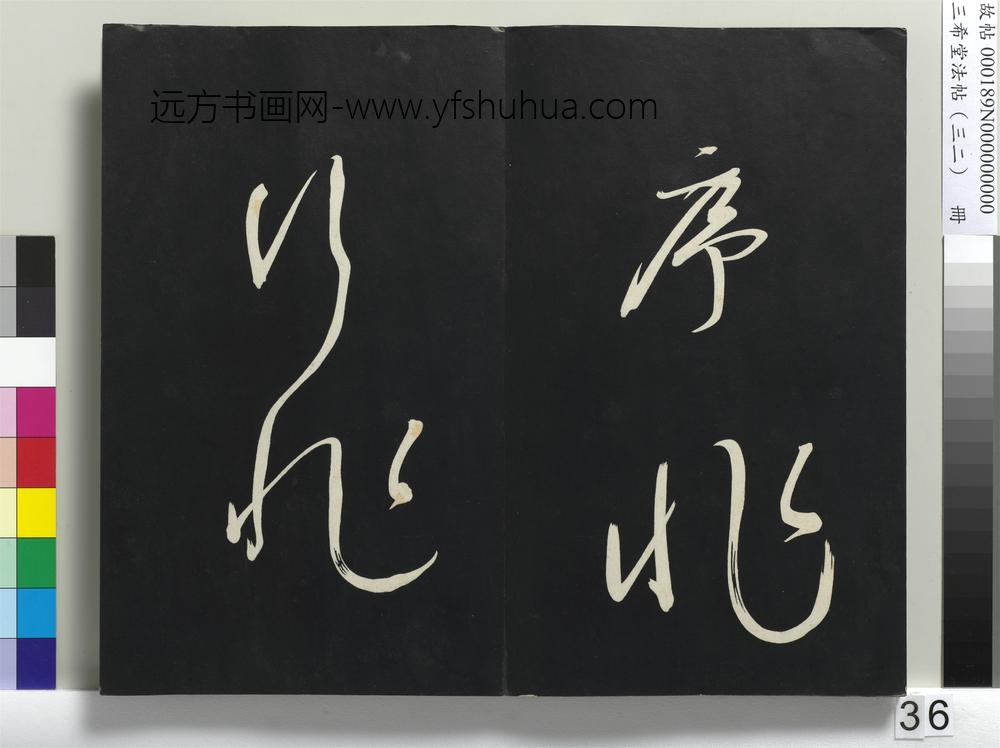 远方书画网-www.yfshuhua.com
序
行
故帖 000189N000000000
三希堂法帖（三二） 冊
36